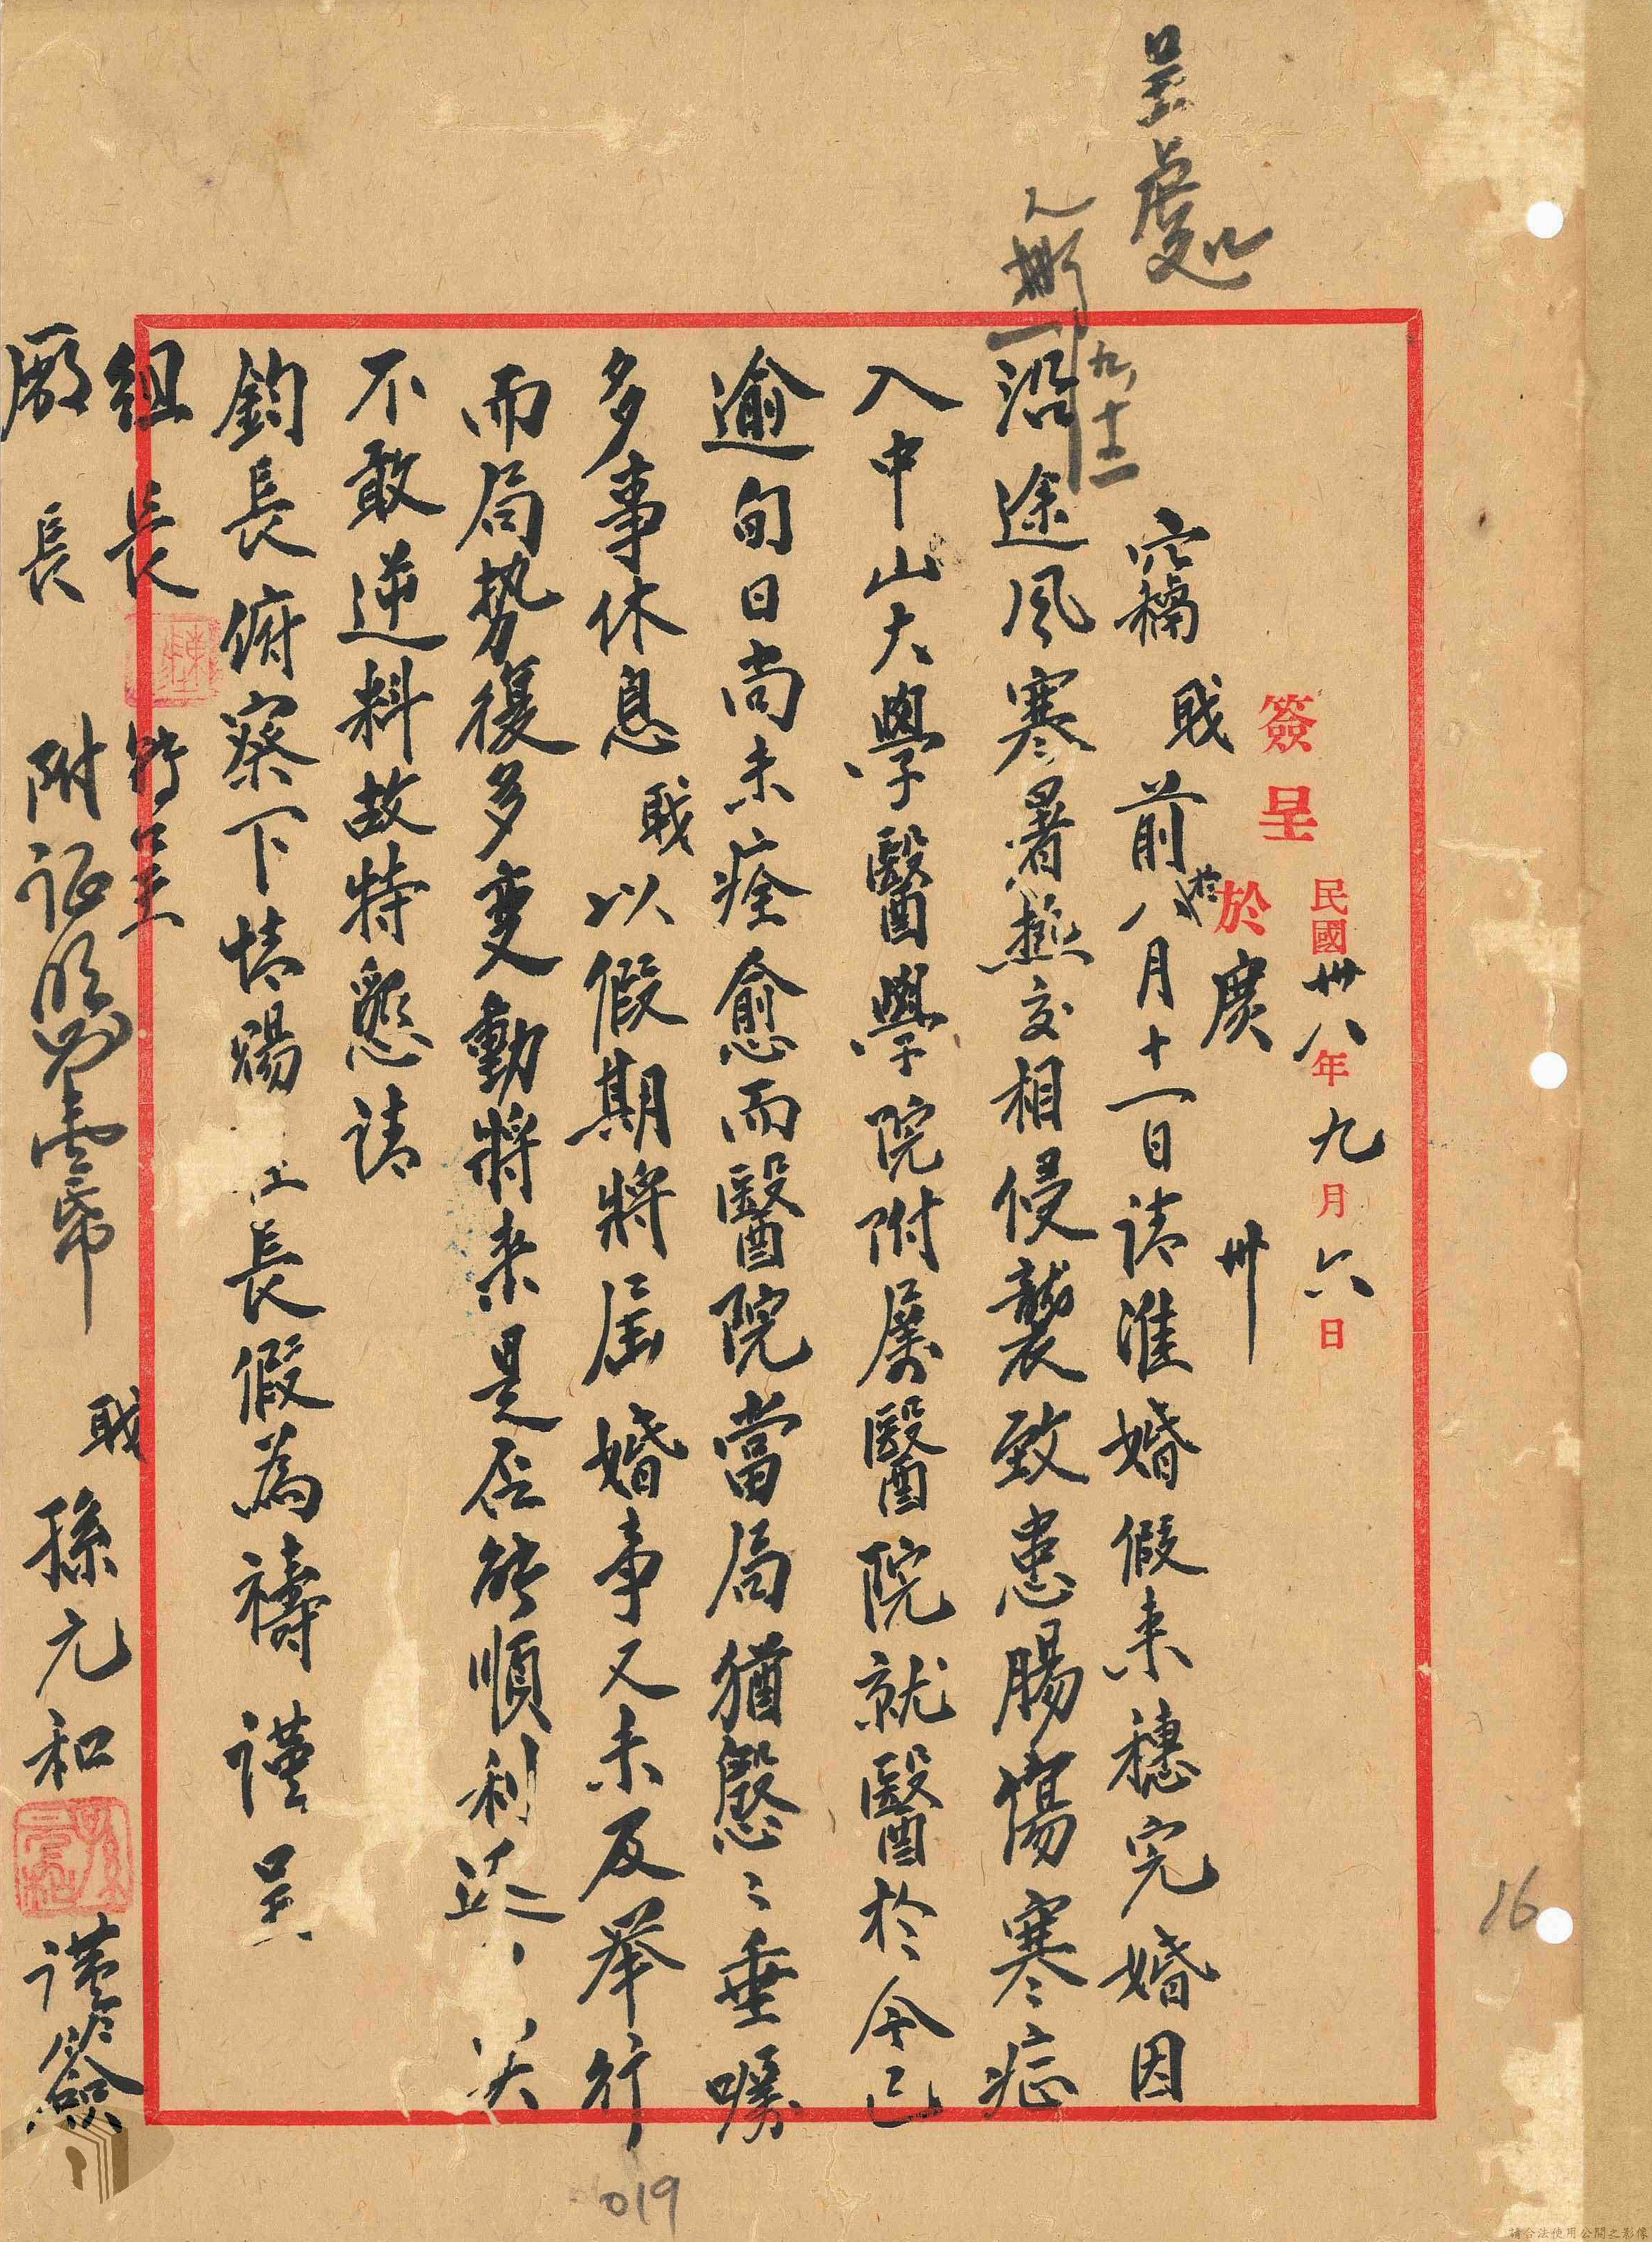 呈處
九、十二
簽呈 民國卅八年九月六日
於廣州
竊職前於八月十一日請准婚假來穗完婚因
沿途風寒暑熱交相侵襲致患腸傷寒症
入中山大學醫學院附屬醫院就醫於今已
逾旬日尚未痊愈而醫院當局猶慇〻垂囑
多事休息職以假期將屆婚事又未及舉行
而局勢復多變動將來是否能順利
不敢逆料故特懇請
鈞長俯察下情賜 長假為禱 謹呈
組長 轉呈
廠長
附証明書壹帋
職孫元和謹簽
16
019
請合法使用公開之影像